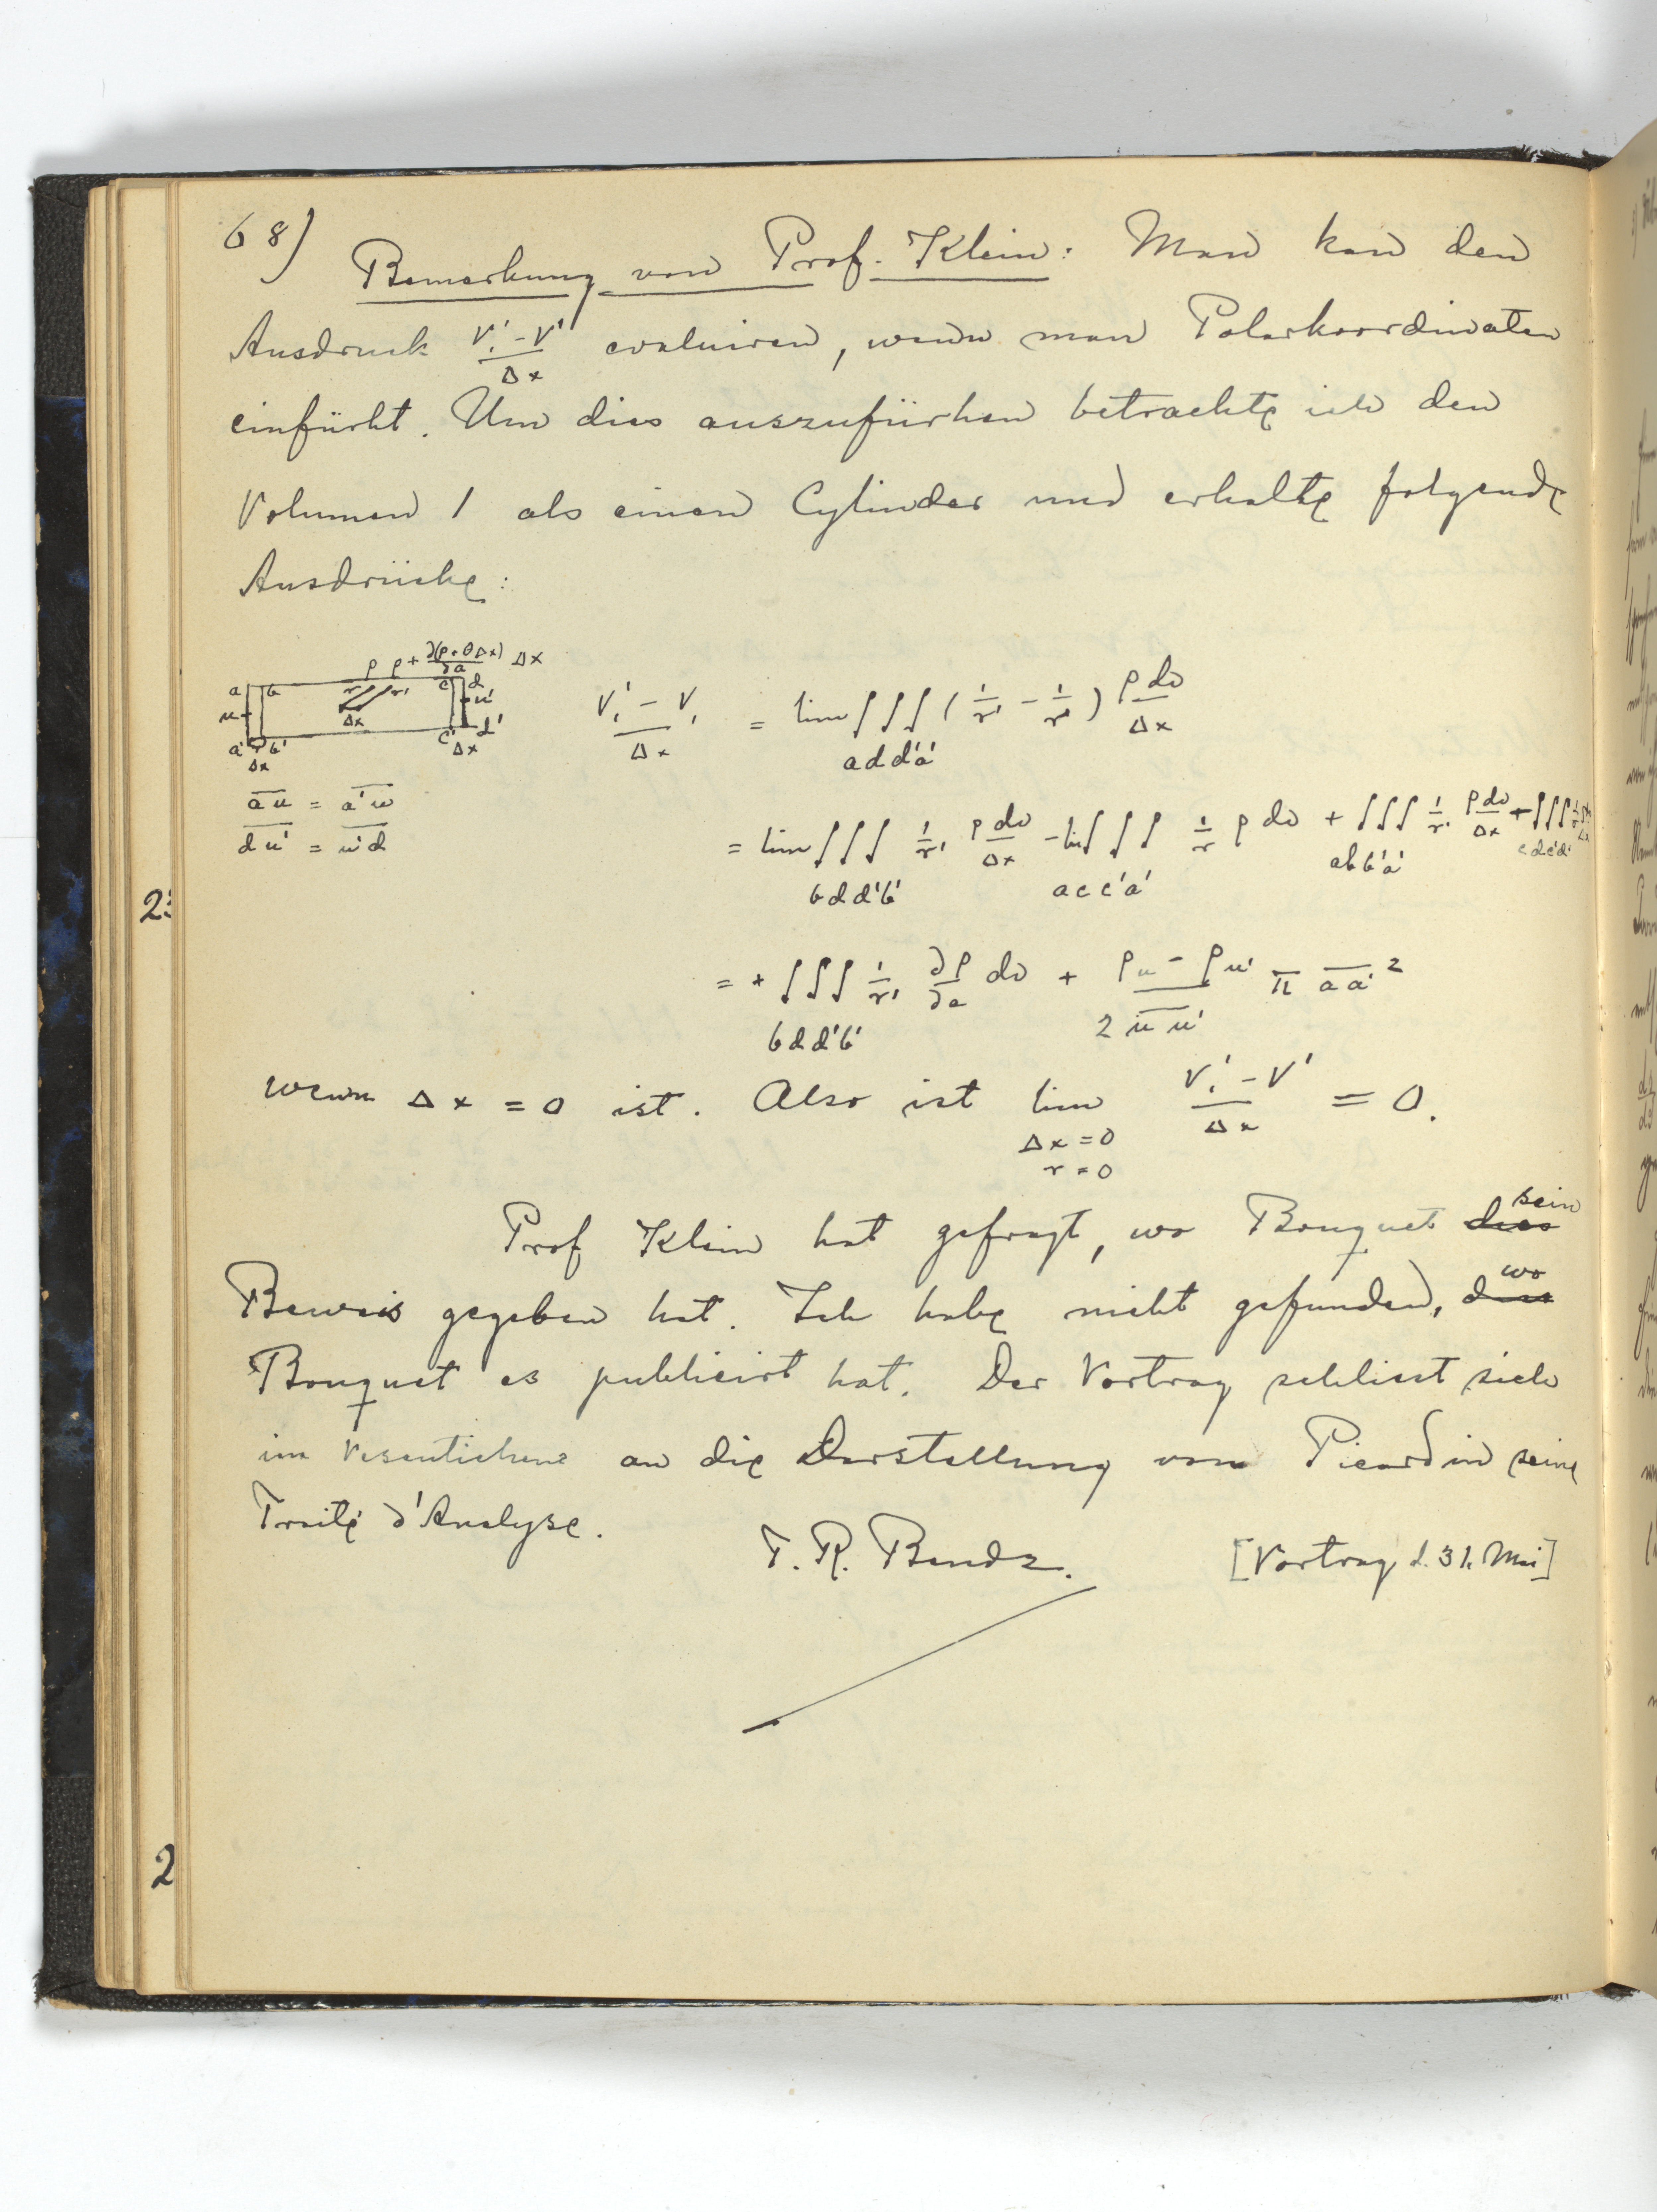 68)
Bemerkung von Prof. Klein: Man kan den
Ausdruck (V₁' - V')/Δx evaluiren, wenn man Polarkoordinaten
einfürht. Um dies auszufürhen betrachte ich den
Volumen 1 als einen Cylinder und erhalte folgende
Ausdrücke:
ρ ρ + ∂(ρ+θΔx)/∂a Δx
a b r r' c d
u Δx u'
a' b' c' d'
Δx Δx
(V₁' - V₁)/Δx = lim ∫∫∫ (1/r' - 1/r) ρ dv/Δx
add'a'
au = a'u
du' = u'd
= lim ∫∫∫ 1/r' ρ dv/Δx - lim ∫∫∫ 1/r ρ dv + ∫∫∫ 1/r' ρ dv/Δx + ∫∫∫
bdd'b' acc'a' abb'a' cdc'd'
= + ∫∫∫ 1/r' ∂ρ/∂a dv + (ρu - ρu')/(2 uu') π aa'²
bdd'b'
wenn Δx = 0 ist. Also ist lim (V₁' - V')/Δx = 0.
Δx = 0
r = 0
Prof Klein hat gefragt, wo Bouquet dies sein
Beweis gegeben hat. Ich habe nicht gefunden, dass wo
Bouquet es publicirt hat. Der Vortrag schliest sich
im Vesentichens an die Darstellung von Picard in seine
Traité d'Analyse.
T. R. Bendz. [Vortrag d. 31. Mai]
2